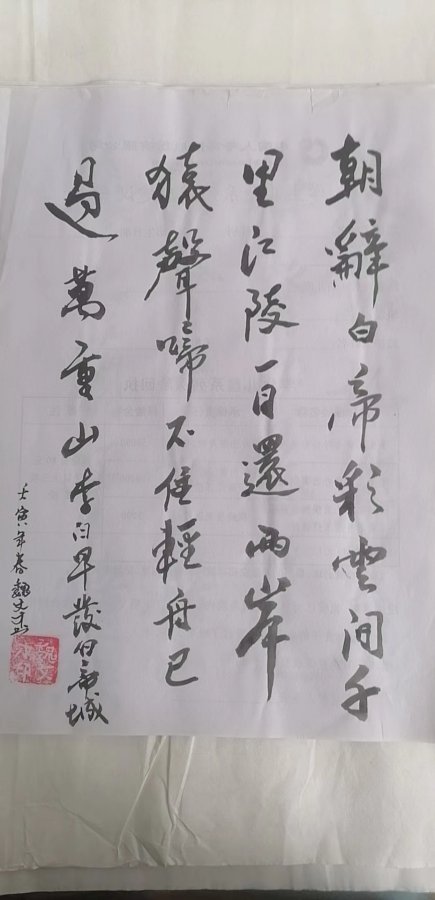 朝辭白帝彩雲间千
里江陵一日還兩岸
猿聲啼不住輕舟已
過萬重山李白早發白帝城
壬寅年春魏文